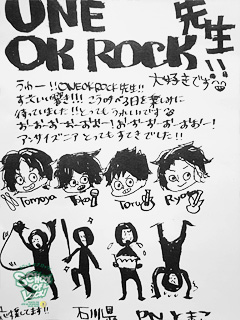 ONE
OK ROCK 先生!!
大好きです
うわー!!ONE OK ROCK先生!!
すっごい響き!!! この日を楽しみに
待っていました!!とってもうれしいです
おーおーおーおおー!おーおーおーおーおおー!
アンサイズニア とってもすてきでした!!
Tomoya Taka Toru Ryota
応援してます!!
石川県 PN